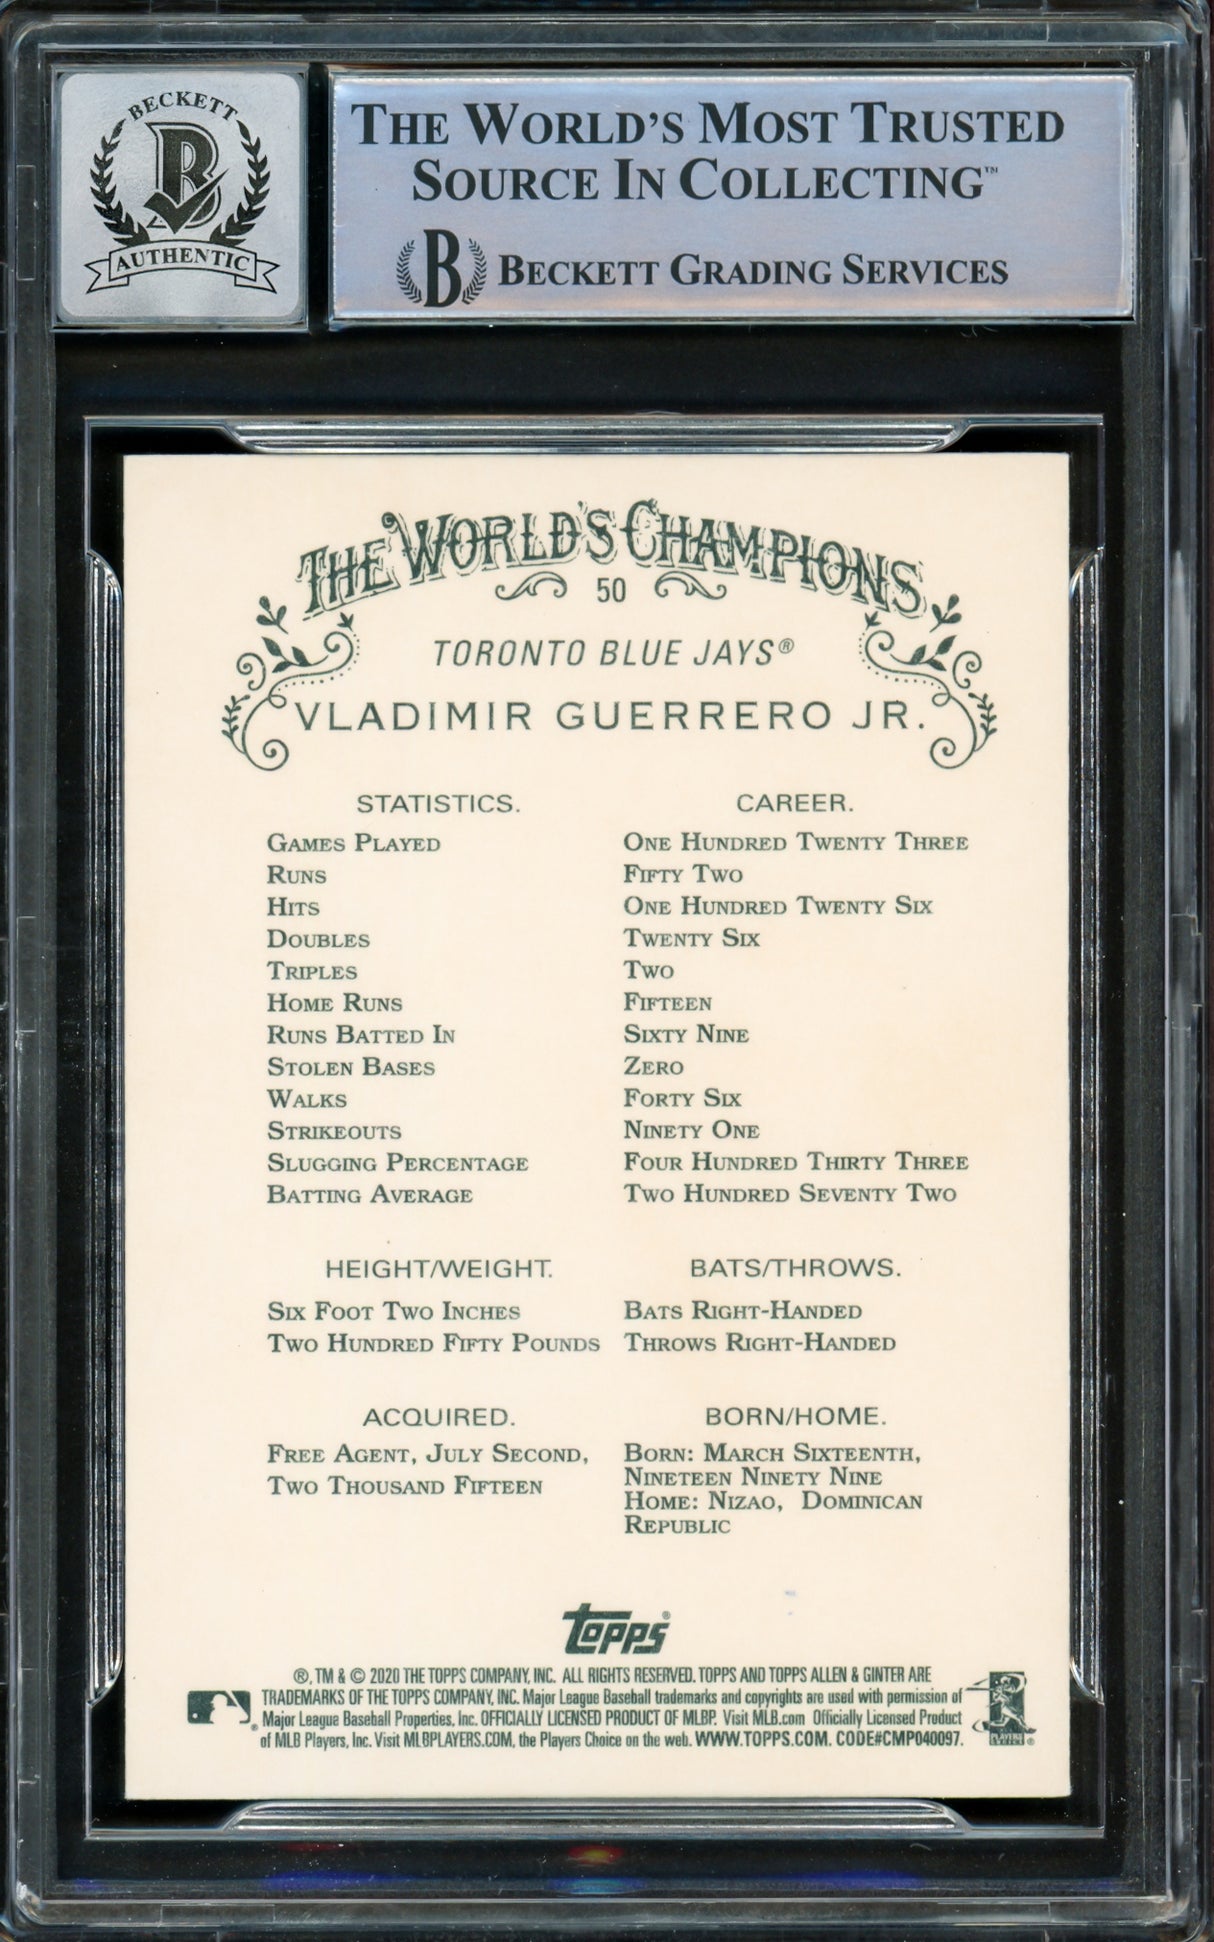 BECKETT
AUTHENTIC
THE WORLD'S MOST TRUSTED
SOURCE IN COLLECTING™
B BECKETT GRADING SERVICES
THE WORLD'S CHAMPIONS
50
TORONTO BLUE JAYS®
VLADIMIR GUERRERO JR.
STATISTICS. CAREER.
GAMES PLAYED ONE HUNDRED TWENTY THREE
RUNS FIFTY TWO
HITS ONE HUNDRED TWENTY SIX
DOUBLES TWENTY SIX
TRIPLES TWO
HOME RUNS FIFTEEN
RUNS BATTED IN SIXTY NINE
STOLEN BASES ZERO
WALKS FORTY SIX
STRIKEOUTS NINETY ONE
SLUGGING PERCENTAGE FOUR HUNDRED THIRTY THREE
BATTING AVERAGE TWO HUNDRED SEVENTY TWO
HEIGHT/WEIGHT. BATS/THROWS.
SIX FOOT TWO INCHES BATS RIGHT-HANDED
TWO HUNDRED FIFTY POUNDS THROWS RIGHT-HANDED
ACQUIRED. BORN/HOME.
FREE AGENT, JULY SECOND,
TWO THOUSAND FIFTEEN
BORN: MARCH SIXTEENTH,
NINETEEN NINETY NINE
HOME: NIZAO, DOMINICAN
REPUBLIC
TOPPS®
®, TM & © 2020 THE TOPPS COMPANY, INC. ALL RIGHTS RESERVED. TOPPS AND TOPPS ALLEN & GINTER ARE
TRADEMARKS OF THE TOPPS COMPANY, INC. Major League Baseball trademarks and copyrights are used with permission of
Major League Baseball Properties, Inc. OFFICIALLY LICENSED PRODUCT OF MLBP. Visit MLB.com Officially Licensed Product
of MLB Players, Inc. Visit MLBPLAYERS.COM, the Players Choice on the web. WWW.TOPPS.COM. CODE#CMP040097.